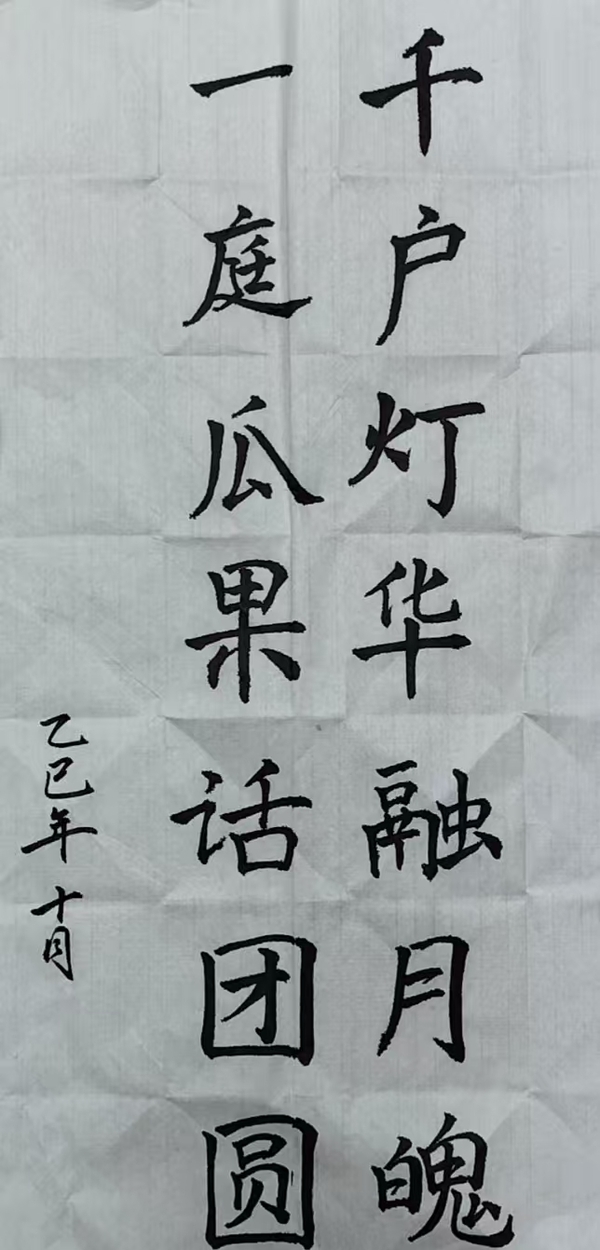 千户灯华融月魄
一庭瓜果话团圆
乙巳年十月